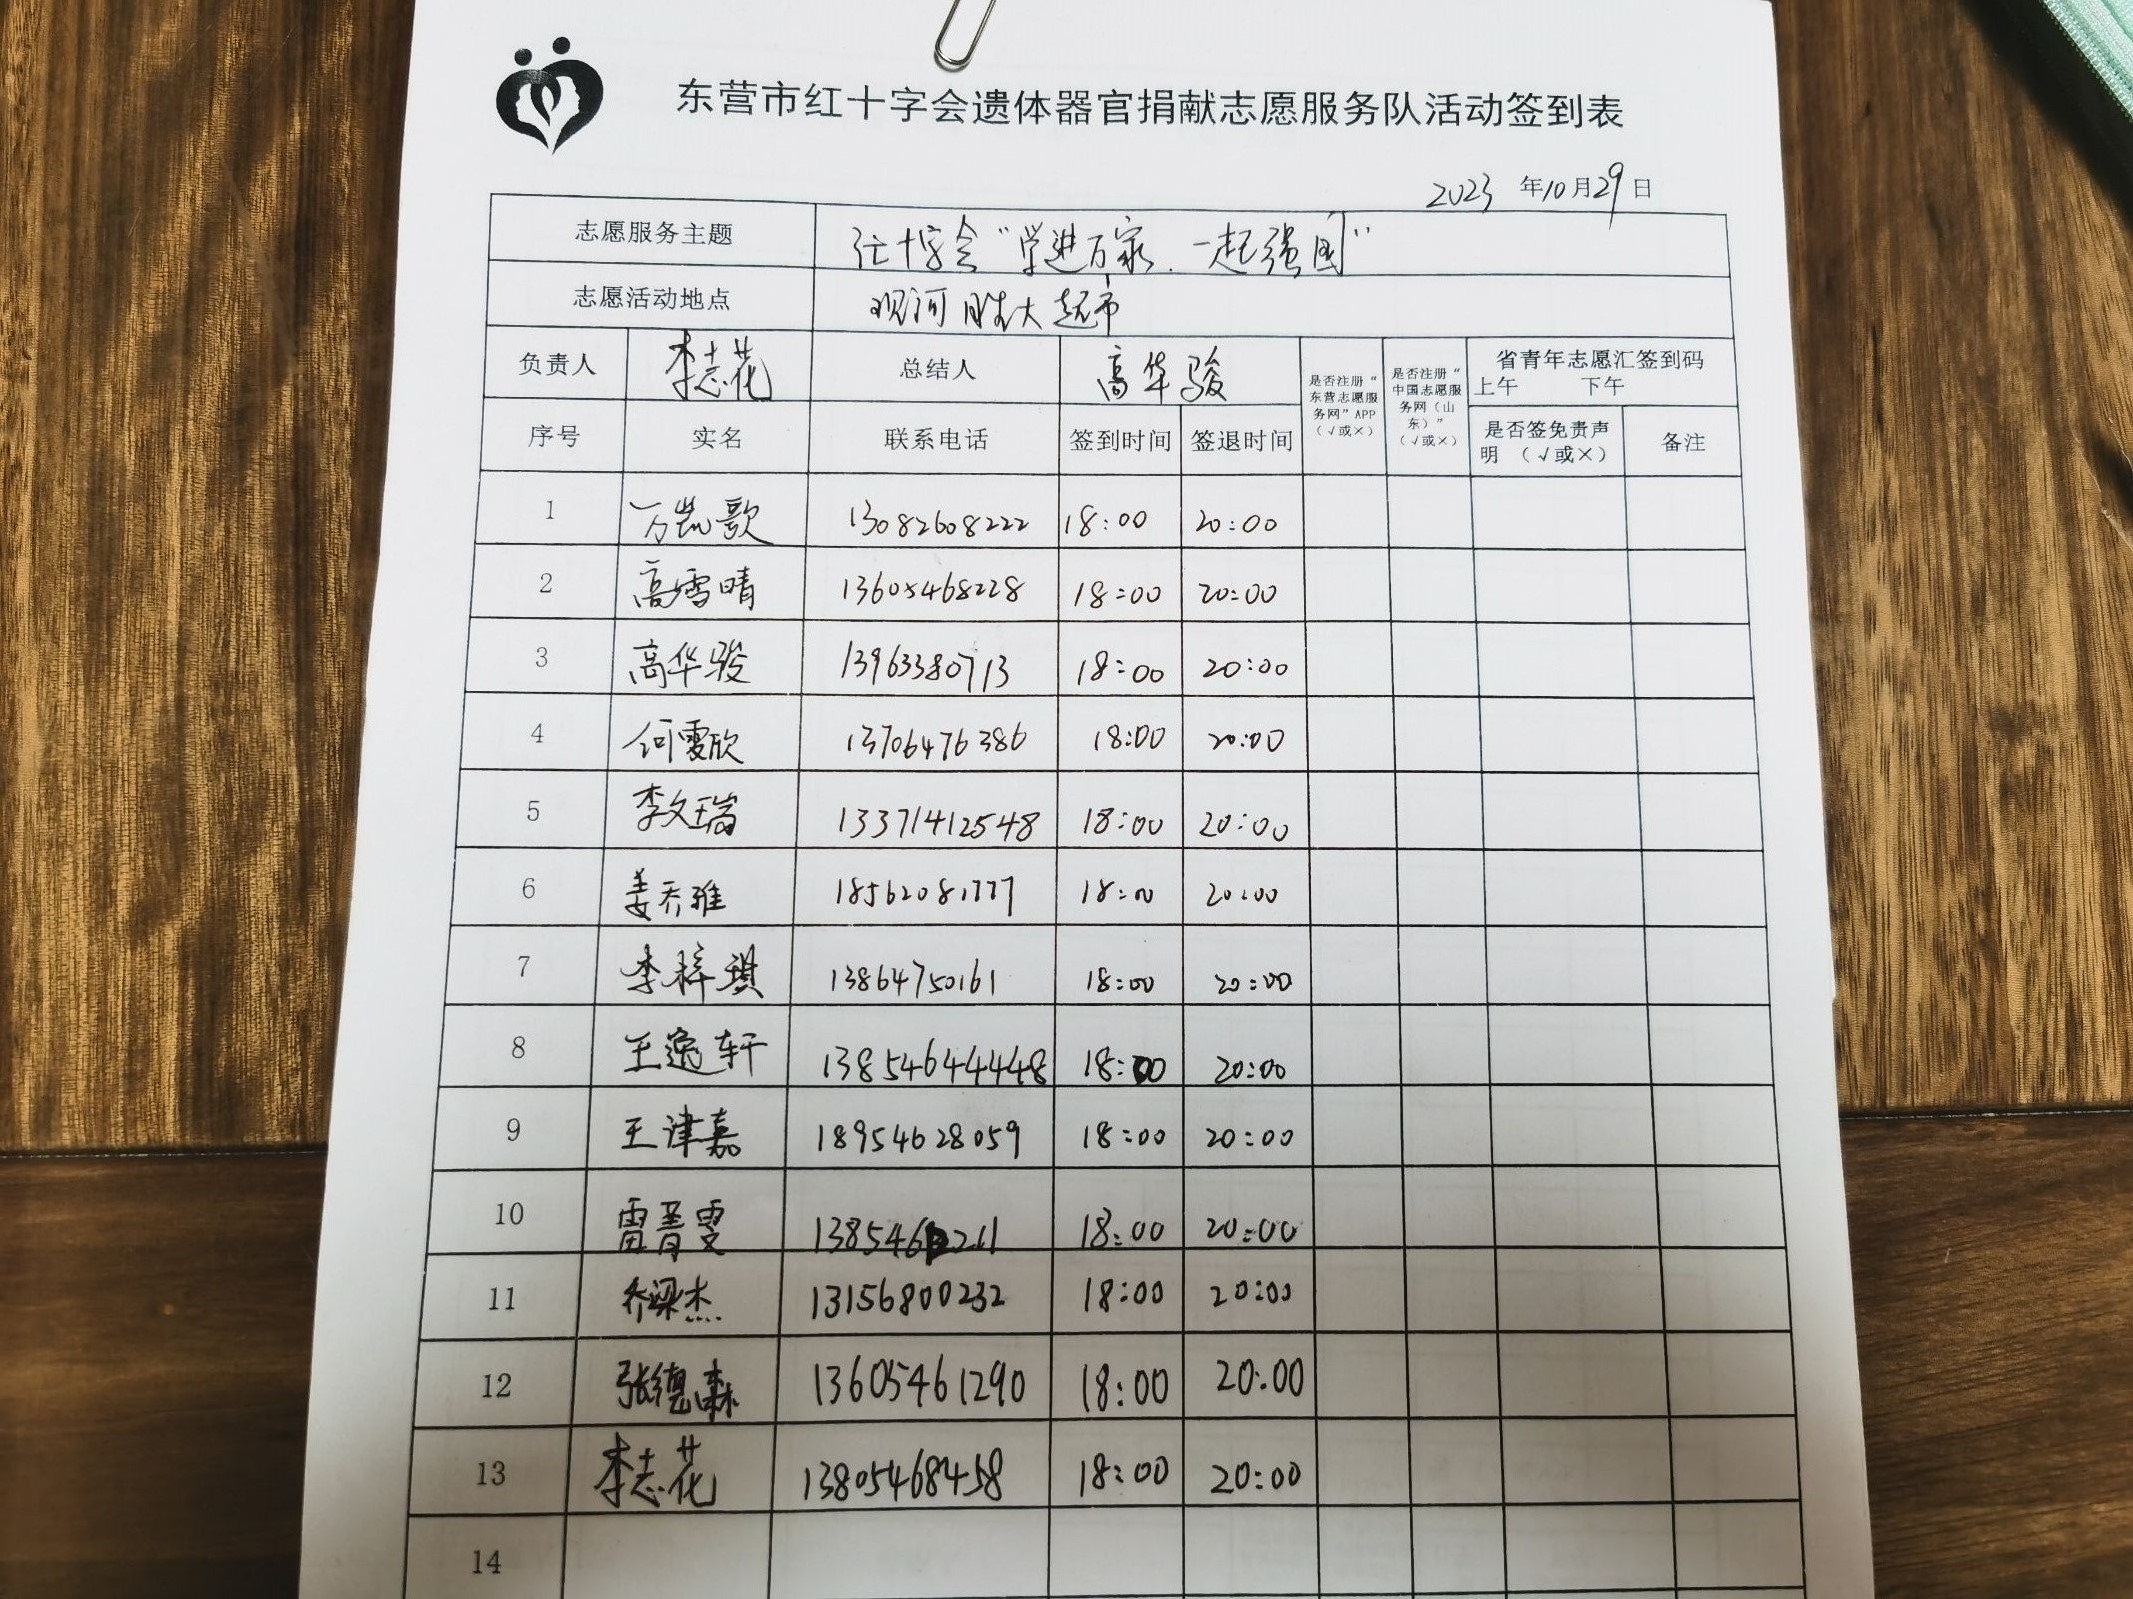 东营市红十字会遗体器官捐献志愿服务队活动签到表
2023 年10月29日
志愿服务主题 红十字会“学进万家、一起强国”
志愿活动地点 观河胜大超市
负责人 李志花 总结人 高华骏 是否注册“东营志愿服务网”APP（√或×） 是否注册“中国志愿服务网（山东）”（√或×） 省青年志愿汇签到码
上午 下午
序号 实名 联系电话 签到时间 签退时间 是否签免责声明 （√或×） 备注
1 万凯歌 13082608222 18:00 20:00
2 高雪晴 13605468228 18:00 20:00
3 高华骏 13963380713 18:00 20:00
4 何雯欣 13706476386 18:00 20:00
5 李文瑞 13371412548 18:00 20:00
6 姜乔雅 18562081777 18:00 20:00
7 李梓琪 13864750161 18:00 20:00
8 王逸轩 13854644448 18:00 20:00
9 王津嘉 18954628059 18:00 20:00
10 雷菁雯 18:00 20:00
11 乔梁杰 13156800232 18:00 20:00
12 张德森 13605461290 18:00 20:00
13 李志花 13805468458 18:00 20:00
14